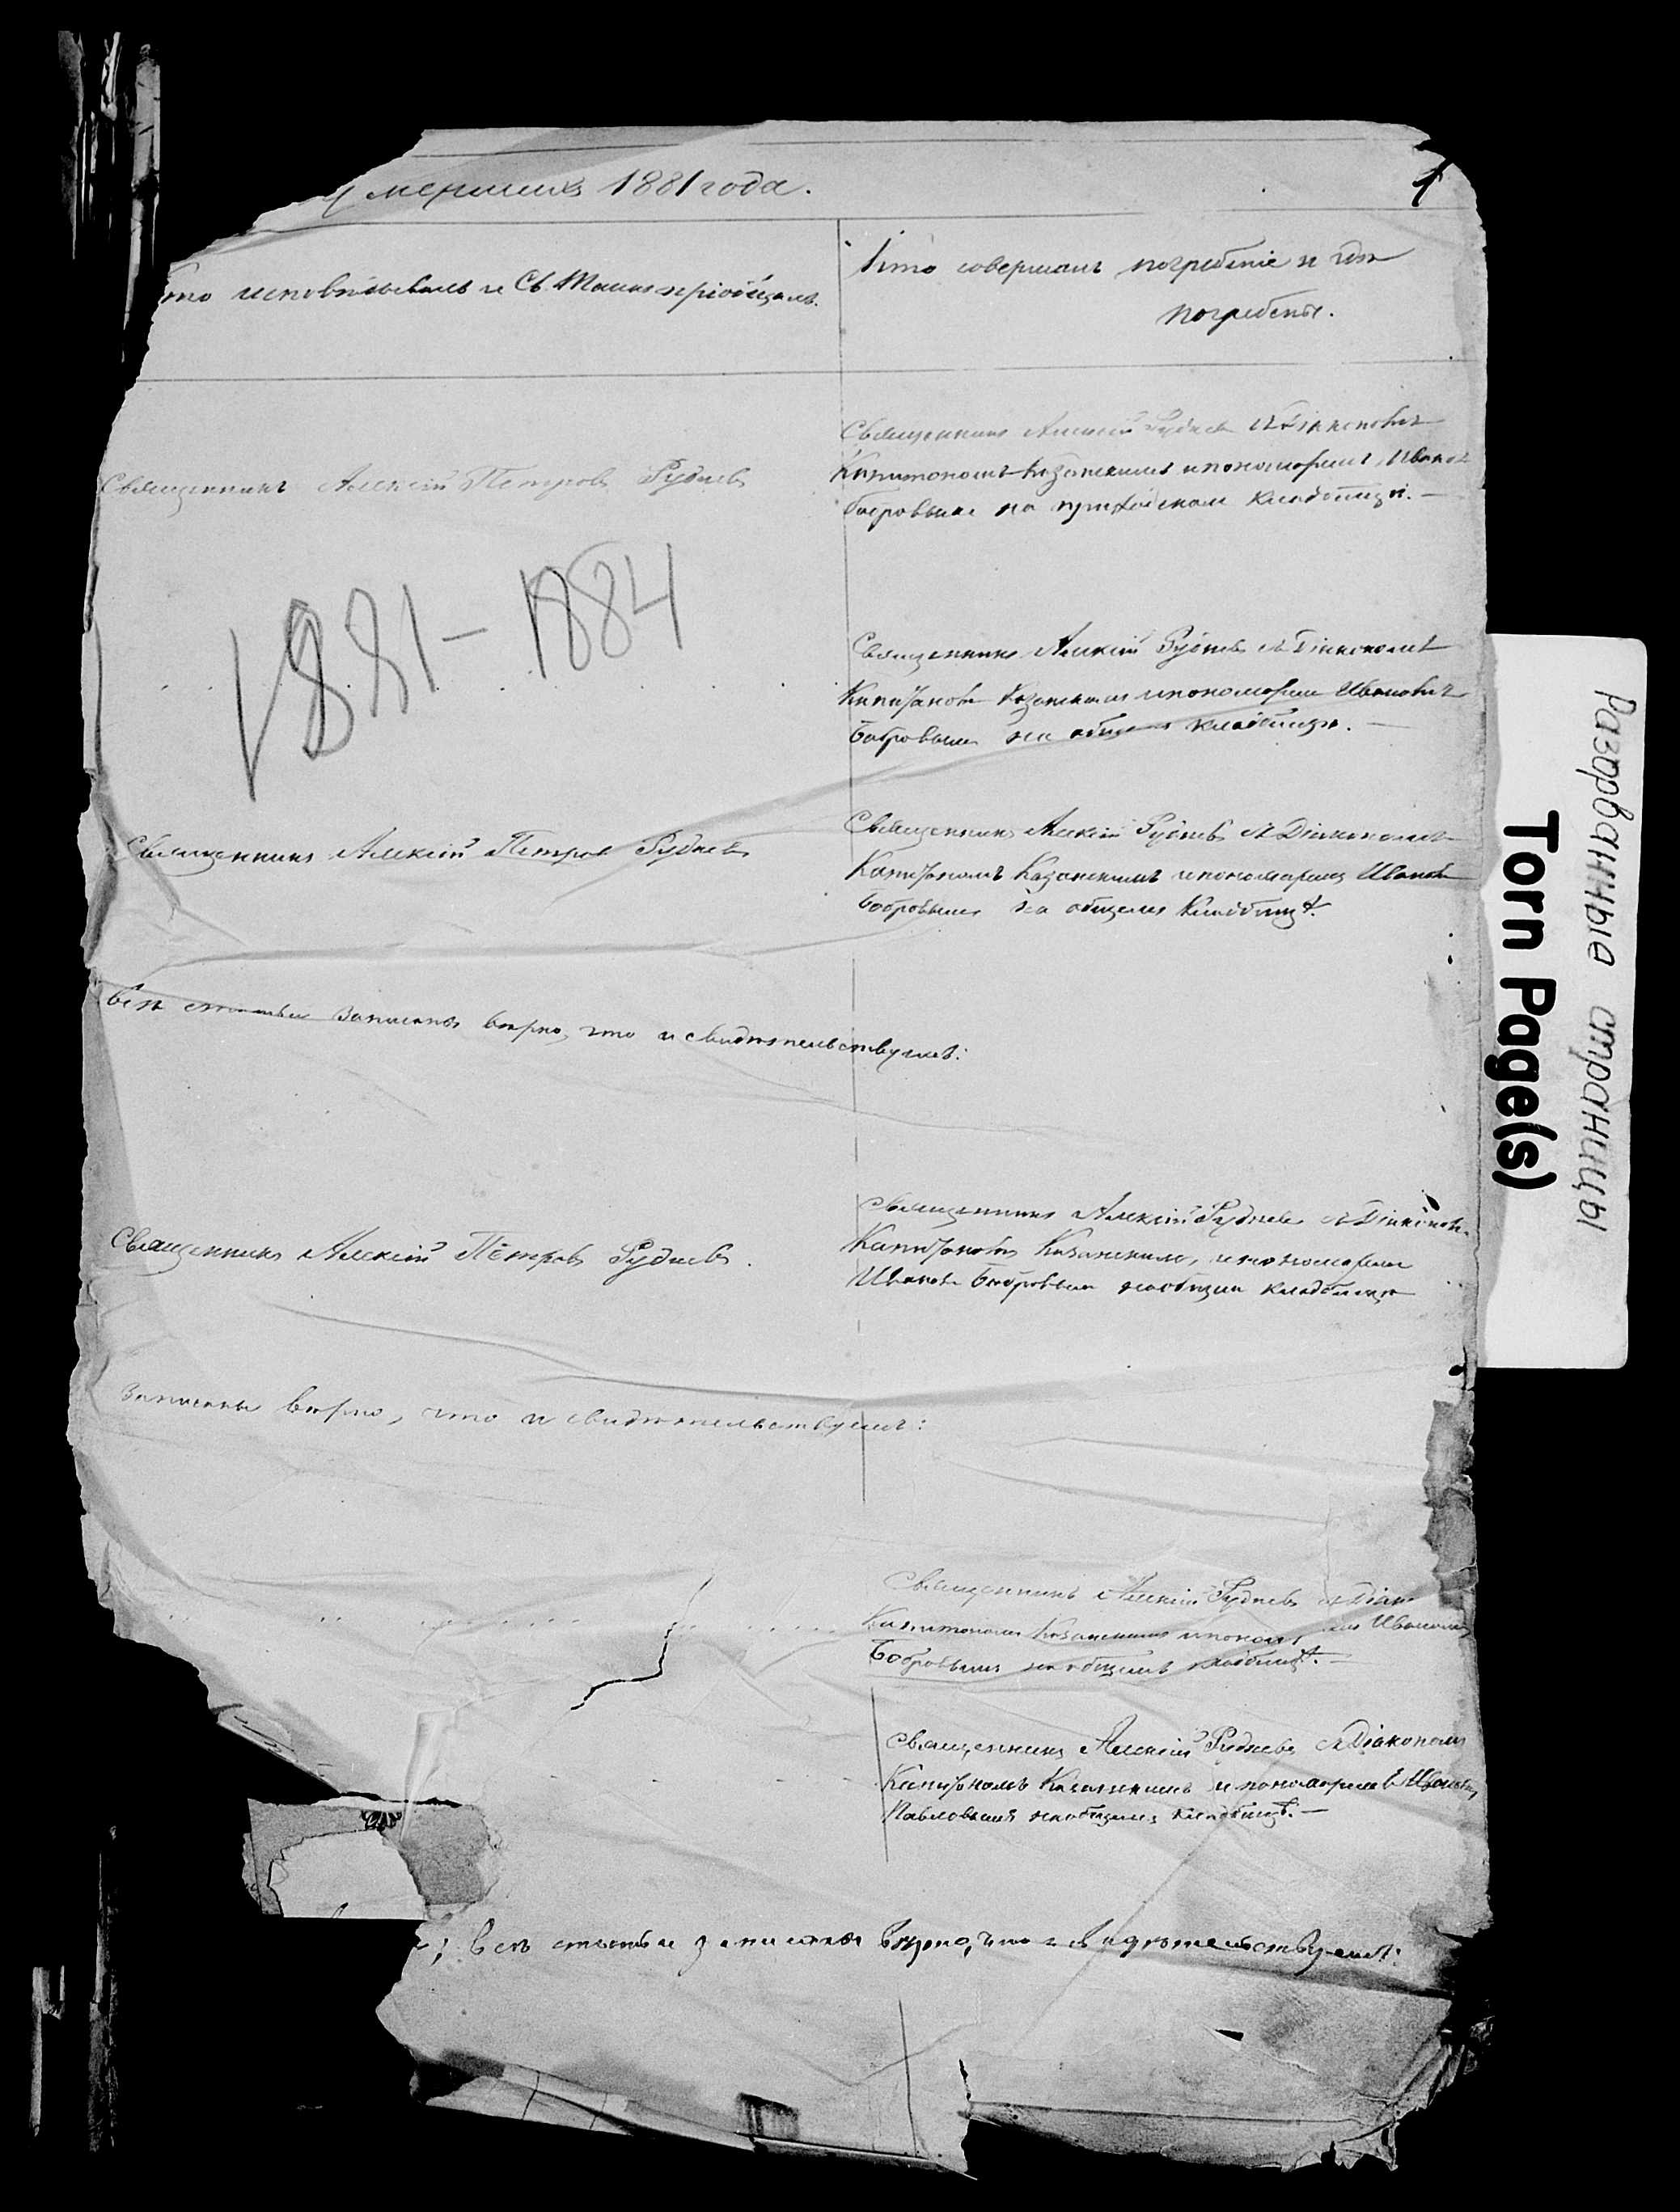 умершихъ 1881 года.
1
то исповѣдывалъ и Св. Таинъ пріобщалъ.
Кто совершалъ погребеніе и гдѣ
погребены.
Священникъ Алексій Петровъ Рудневъ
Священникъ Алексій Рудневъ съ Діакономъ
Капитономъ Казанскимъ и пономаремъ Иваномъ
Бобровымъ на приходскомъ кладбищѣ. —
1881 - 1884
Священникъ Алексій Рудневъ съ Діакономъ
Капитономъ Казанскимъ и пономаремъ Иваномъ
Бобровымъ на общемъ кладбищѣ. —
Священникъ Алексій Петровъ Рудневъ
Священникъ Алексій Рудневъ съ Діакономъ
Капитономъ Казанскимъ и пономаремъ Иваномъ
Бобровымъ на общемъ кладбищѣ.
всѣ статьи записаны вѣрно, что и свидѣтельствуемъ:
Священникъ Алексій Петровъ Рудневъ.
Священникъ Алексій Рудневъ съ Діаконом.
Капитономъ Казанскимъ, и пономаремъ
Иваномъ Бобровымъ на общемъ кладбищѣ
записаны вѣрно, что и свидѣтельствуемъ:
Священникъ Алексій Рудневъ съ Діак
Капитономъ Казанскимъ и поном Иваномъ
Бобровымъ на общемъ кладбищѣ. —
Священникъ Алексій Рудневъ съ Діакономъ
Капитономъ Казанскимъ и пономаремъ Иваномъ
Павловымъ на общемъ кладбищѣ. —
; всѣ статьи записаны вѣрно, что и свидѣтельствуемъ:
Разорванные страницы
Torn Page(s)